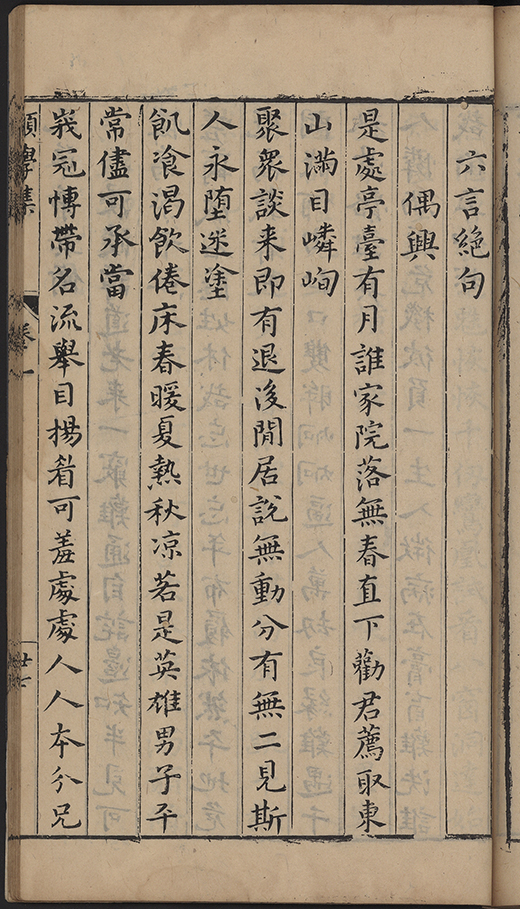 六言絕句
偶興
是處亭臺有月誰家院落無春直下勸君薦取東
山滿目嶙峋
聚衆談来即有退後閒居說無動分有無二見斯
人永堕迷塗
飢飡渴飲倦床春暖夏熱秋凉若是英雄男子平
常儘可承當
峩冠愽帶名流舉目揚眉可羞處處人人本分兄
學集
卷一
廿七